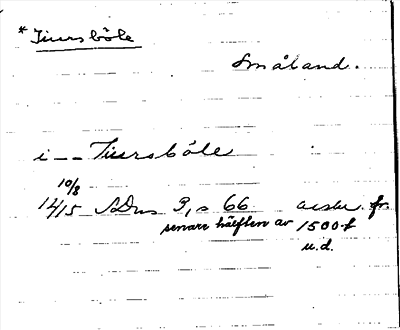 * Tiursböle
Småland.
i -- Tiursböle
10/8
1415 SDns 3, s 66 avskr. fr.
senare hälften av 1500-t
u.d.